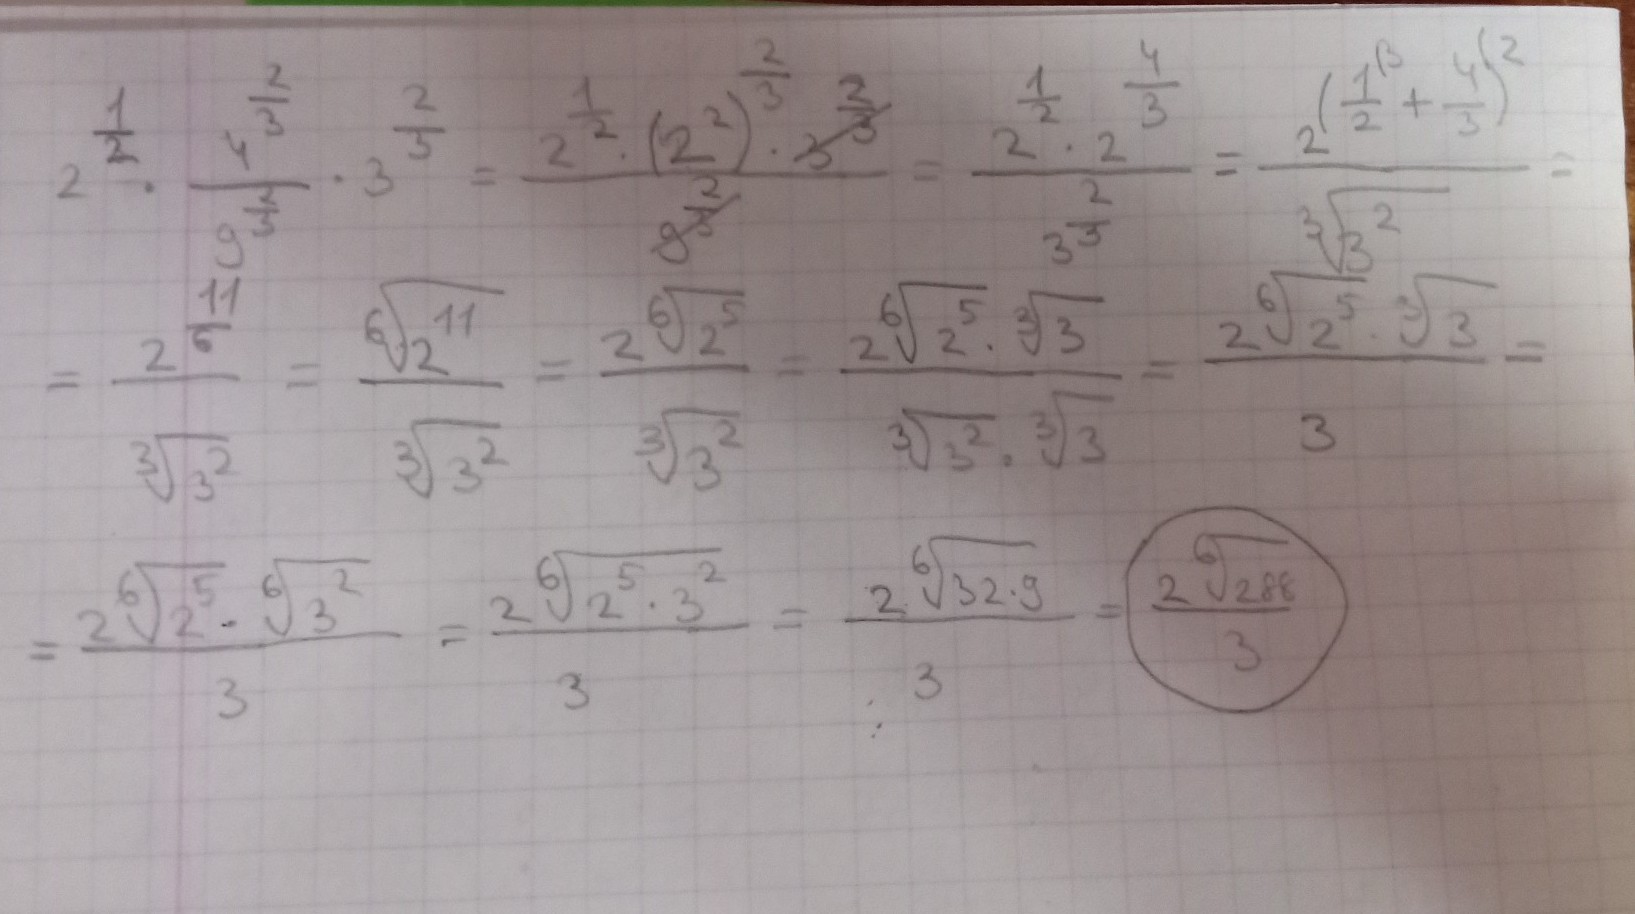 2^{\frac{1}{2}} \cdot \frac{4^{\frac{2}{3}}}{9^{\frac{2}{3}}} \cdot 3^{\frac{2}{3}} = \frac{2^{\frac{1}{2}} \cdot (2^2)^{\frac{2}{3}} \cdot 3^{\frac{2}{3}}}{9^{\frac{2}{3}}} = \frac{2^{\frac{1}{2}} \cdot 2^{\frac{4}{3}}}{3^{\frac{2}{3}}} = \frac{2^{(\frac{1}{2}^{(3} + \frac{4}{3}^{(2})}}{\sqrt[3]{3^2}} =
= \frac{2^{\frac{11}{6}}}{\sqrt[3]{3^2}} = \frac{\sqrt[6]{2^{11}}}{\sqrt[3]{3^2}} = \frac{2\sqrt[6]{2^5}}{\sqrt[3]{3^2}} = \frac{2\sqrt[6]{2^5} \cdot \sqrt[3]{3}}{\sqrt[3]{3^2} \cdot \sqrt[3]{3}} = \frac{2\sqrt[6]{2^5} \cdot \sqrt[3]{3}}{3} =
= \frac{2\sqrt[6]{2^5} \cdot \sqrt[6]{3^2}}{3} = \frac{2\sqrt[6]{2^5 \cdot 3^2}}{3} = \frac{2\sqrt[6]{32 \cdot 9}}{3} = \frac{2\sqrt[6]{288}}{3}